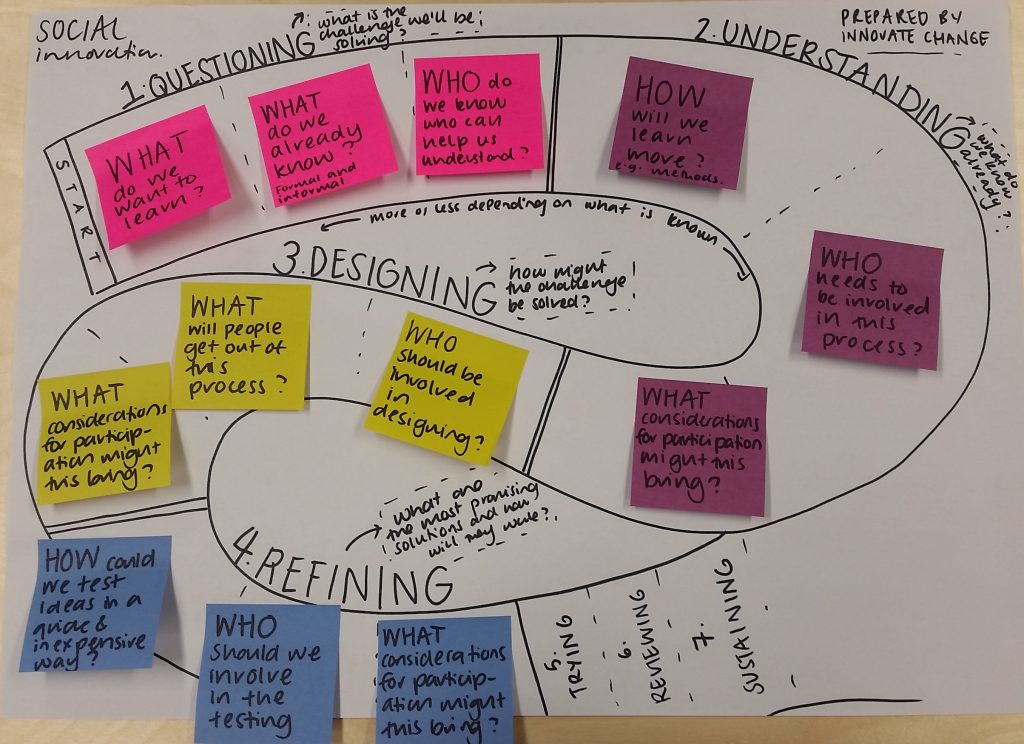 SOCIAL
innovation.
PREPARED BY
INNOVATE CHANGE
START
1. QUESTIONING
what is the
challenge we'll be
solving?
WHAT
do we
want to
learn?
WHAT
do we
already
know?
Formal and
informal
WHO do
we know
who can
help us
understand?
2. UNDERSTANDING
what do
we know
already?
HOW
will we
learn
more?
e.g. methods.
WHO
needs to
be involved
in this
process?
WHAT
considerations
for participation
might this
bring?
more or less depending on what is known
3. DESIGNING
how might
the challenge
be solved?
WHO
should be
involved
in
designing?
WHAT
will people
get out of
this
process?
WHAT
considerations
for particip-
ation might
this bring?
4. REFINING
what are
the most promising
solutions and how
will they work?
HOW could
we test
ideas in a
quick &
inexpensive
way?
WHO
should we
involve
in the
testing
WHAT
considerations
for particip-
ation might
this bring?
5.
TRYING
6.
REVIEWING
7.
SUSTAINING